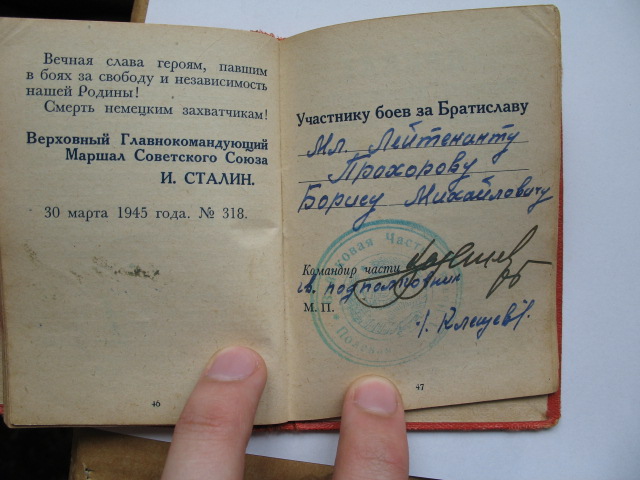 Вечная слава героям, павшим
в боях за свободу и независимость
нашей Родины!
Смерть немецким захватчикам!
Верховный Главнокомандующий
Маршал Советского Союза
И. СТАЛИН.
30 марта 1945 года. № 318.
46
Участнику боев за Братиславу
Мл. Лейтенанту
Прохорову
Борису Михайловичу
Командир части
гв. подполковник
М. П.
/Клещев/.
47